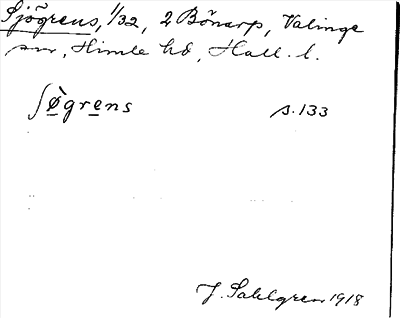 Sjögrens, 1/32, 2 Bönarp, Valinge
sn, Himle hd, Hall. l.
ʃø̀grens s.133
J. Sahlgren 1918